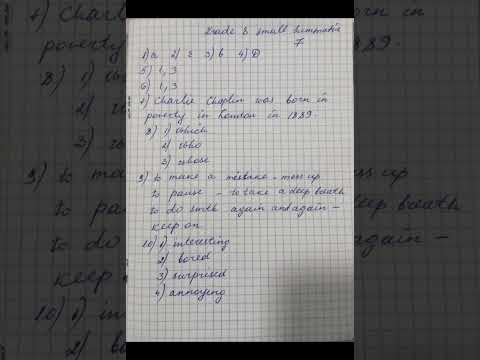 Grade 8 Small Summative
7
1) a 2) c 3) b 4) D
5) 1, 3
6) 1, 3
7) Charlie Choplin was born in
poverty in London in 1889.
8) 1) which
2) who
3) whose
9) to make a mistake - mess up
to pause - to take a deep breath
to do smth again and again -
keep on
10) 1) interesting
2) bored
3) surprised
4) annoying